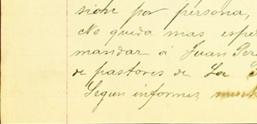 sion por persona,
No queda mas espe
mandar á Juan Per
de pastores de La
Segun informes